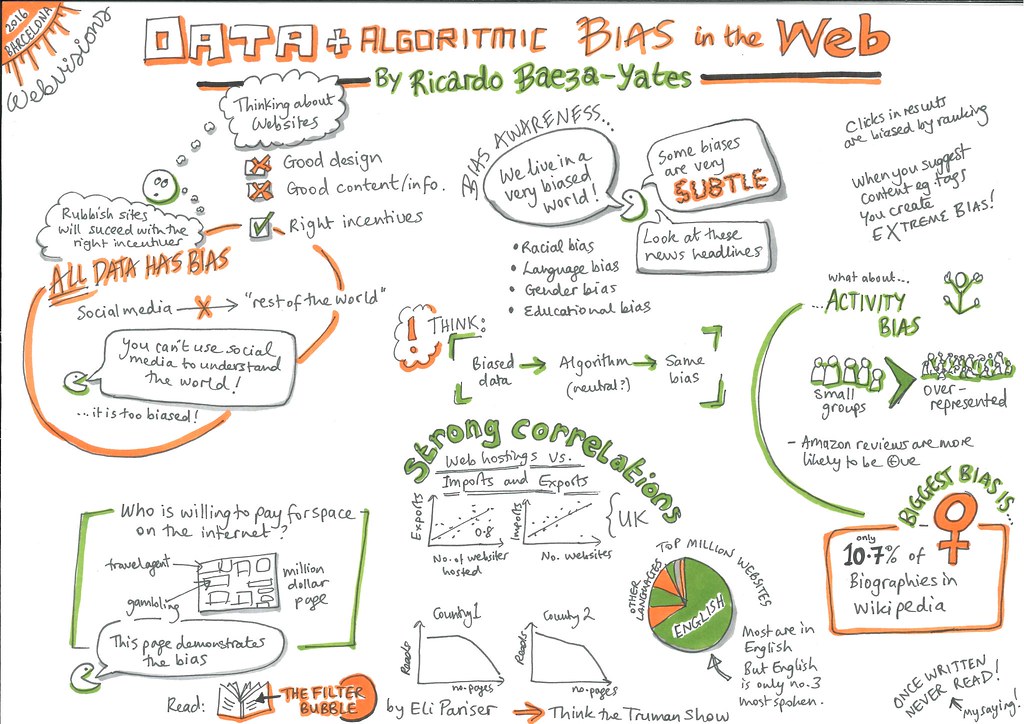 2016
BARCELONA
WebVisions
DATA + ALGORITMIC BIAS in the Web
By Ricardo Baeza-Yates
Thinking about
Websites
Good design
Good content/info.
Right incentives
Rubbish sites
will suceed with the
right incentives
ALL DATA HAS BIAS
Social media → "rest of the world"
You can't use social
media to understand
the world!
...it is too biased!
BIAS AWARENESS...
We live in a
very biased
world!
Some biases
are very
SUBTLE
Look at these
news headlines
• Racial bias
• Language bias
• Gender bias
• Educational bias
! THINK:
Biased
data
→ Algorithm
(neutral?)
→ Same
bias
Clicks in results
are biased by ranking
When you suggest
content eg. tags
you create
EXTREME BIAS!
what about...
...ACTIVITY
BIAS
small
groups
over-
represented
- Amazon reviews are more
likely to be ⊕ve
BIGGEST BIAS IS...
only
10.7% of
Biographies in
Wikipedia
Strong correlations
Web hostings Vs.
Imports and Exports
Exports
0.8
No. of websites
hosted
Imports
No. websites
UK
TOP MILLION WEBSITES
OTHER
LANGUAGES
ENGLISH
Most are in
English
But English
is only no. 3
most spoken.
Country 1
Reads
no. pages
Country 2
Reads
no. pages
Who is willing to pay for space
on the internet?
travel agent
gambling
million
dollar
page
This page demonstrates
the bias
Read:
THE FILTER
BUBBLE
by Eli Pariser → Think the Truman Show
ONCE WRITTEN
NEVER READ!
my saying!